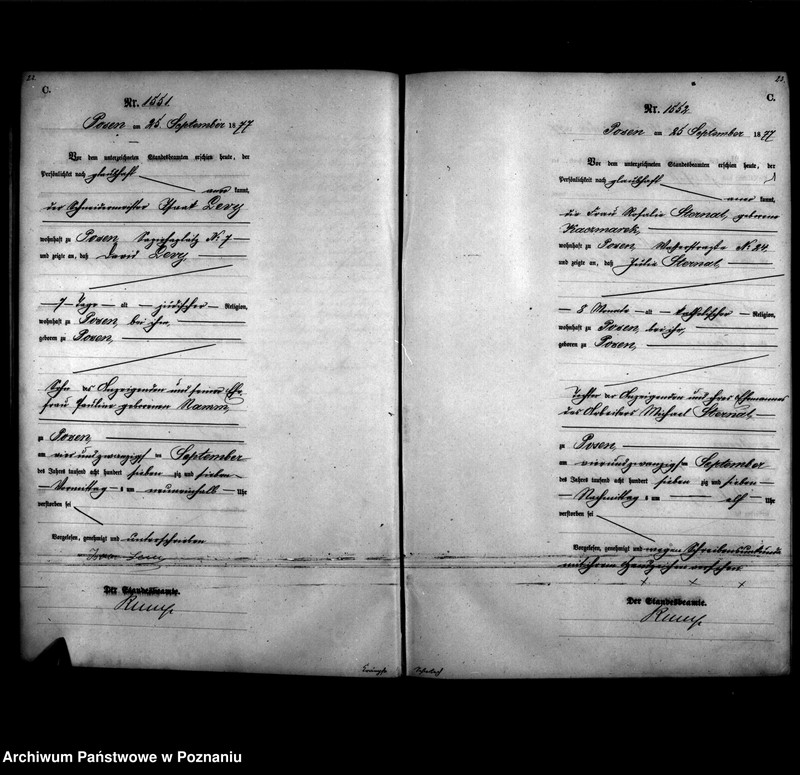 22.
C.
Nr. 1551
Posen am 25 September 1877
Vor dem unterzeichneten Standesbeamten erschien heute, der
Persönlichkeit nach glaubhaft
aner kannt,
der Schneidermeister Isaak Levy
wohnhaft zu Posen, Sapiehaplatz N. 7
und zeigte an, daß David Levy
7 Tage alt jüdischer Religion,
wohnhaft zu Posen, bei ihm,
geboren zu Posen,
Sohn des Anzeigenden und seiner Ehe
frau Pauline geborenen Namm,
zu Posen,
am vierundzwanzigsten September
des Jahrs tausend acht hundert sieben zig und sieben
Vormittag um neuneinhalb Uhr
verstorben sei
Vorgelesen, genehmigt und unterschrieben
Levy
Der Standesbeamte.
23.
C.
Nr. 1552
Posen am 25 September 1877
Vor dem unterzeichneten Standesbeamten erschien heute, der
Persönlichkeit nach glaubhaft
aner kannt,
die Frau Rosalie Sternal, geborene
Kaczmarek,
wohnhaft zu Posen, Wasserstraße N. 24
und zeigte an, daß Julie Sternal,
8 Monate alt katholischer Religion,
wohnhaft zu Posen, bei ihr,
geboren zu Posen,
Tochter der Anzeigenden und ihres Ehemannes
des Arbeiters Michael Sternal
zu Posen,
am vierundzwanzigsten September
des Jahrs tausend acht hundert sieben zig und sieben
Nachmittag um elf Uhr
verstorben sei
Vorgelesen, genehmigt und wegen Schreibensunkunde
mit ihrem Handzeichen versehen
+ + +
Der Standesbeamte.
Archiwum Państwowe w Poznaniu